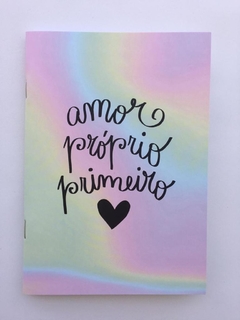 amor
próprio
primeiro